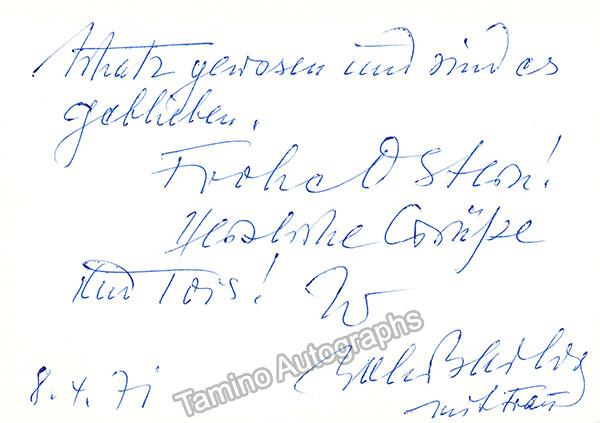 Schatz gewesen und sind es
geblieben.
Frohe Ostern!
Herzliche Grüße
und Tois!
8.4.71
mit Frau
Tamino Autographs